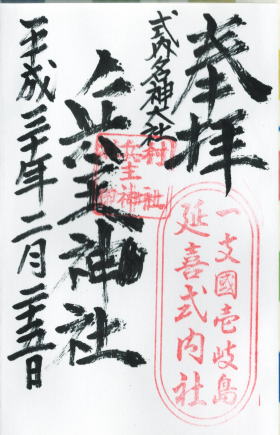 奉拝
一支國壱岐島
延喜式内社
式内名神大社
兵主神社
兵主神
平成三十年二月二十五日